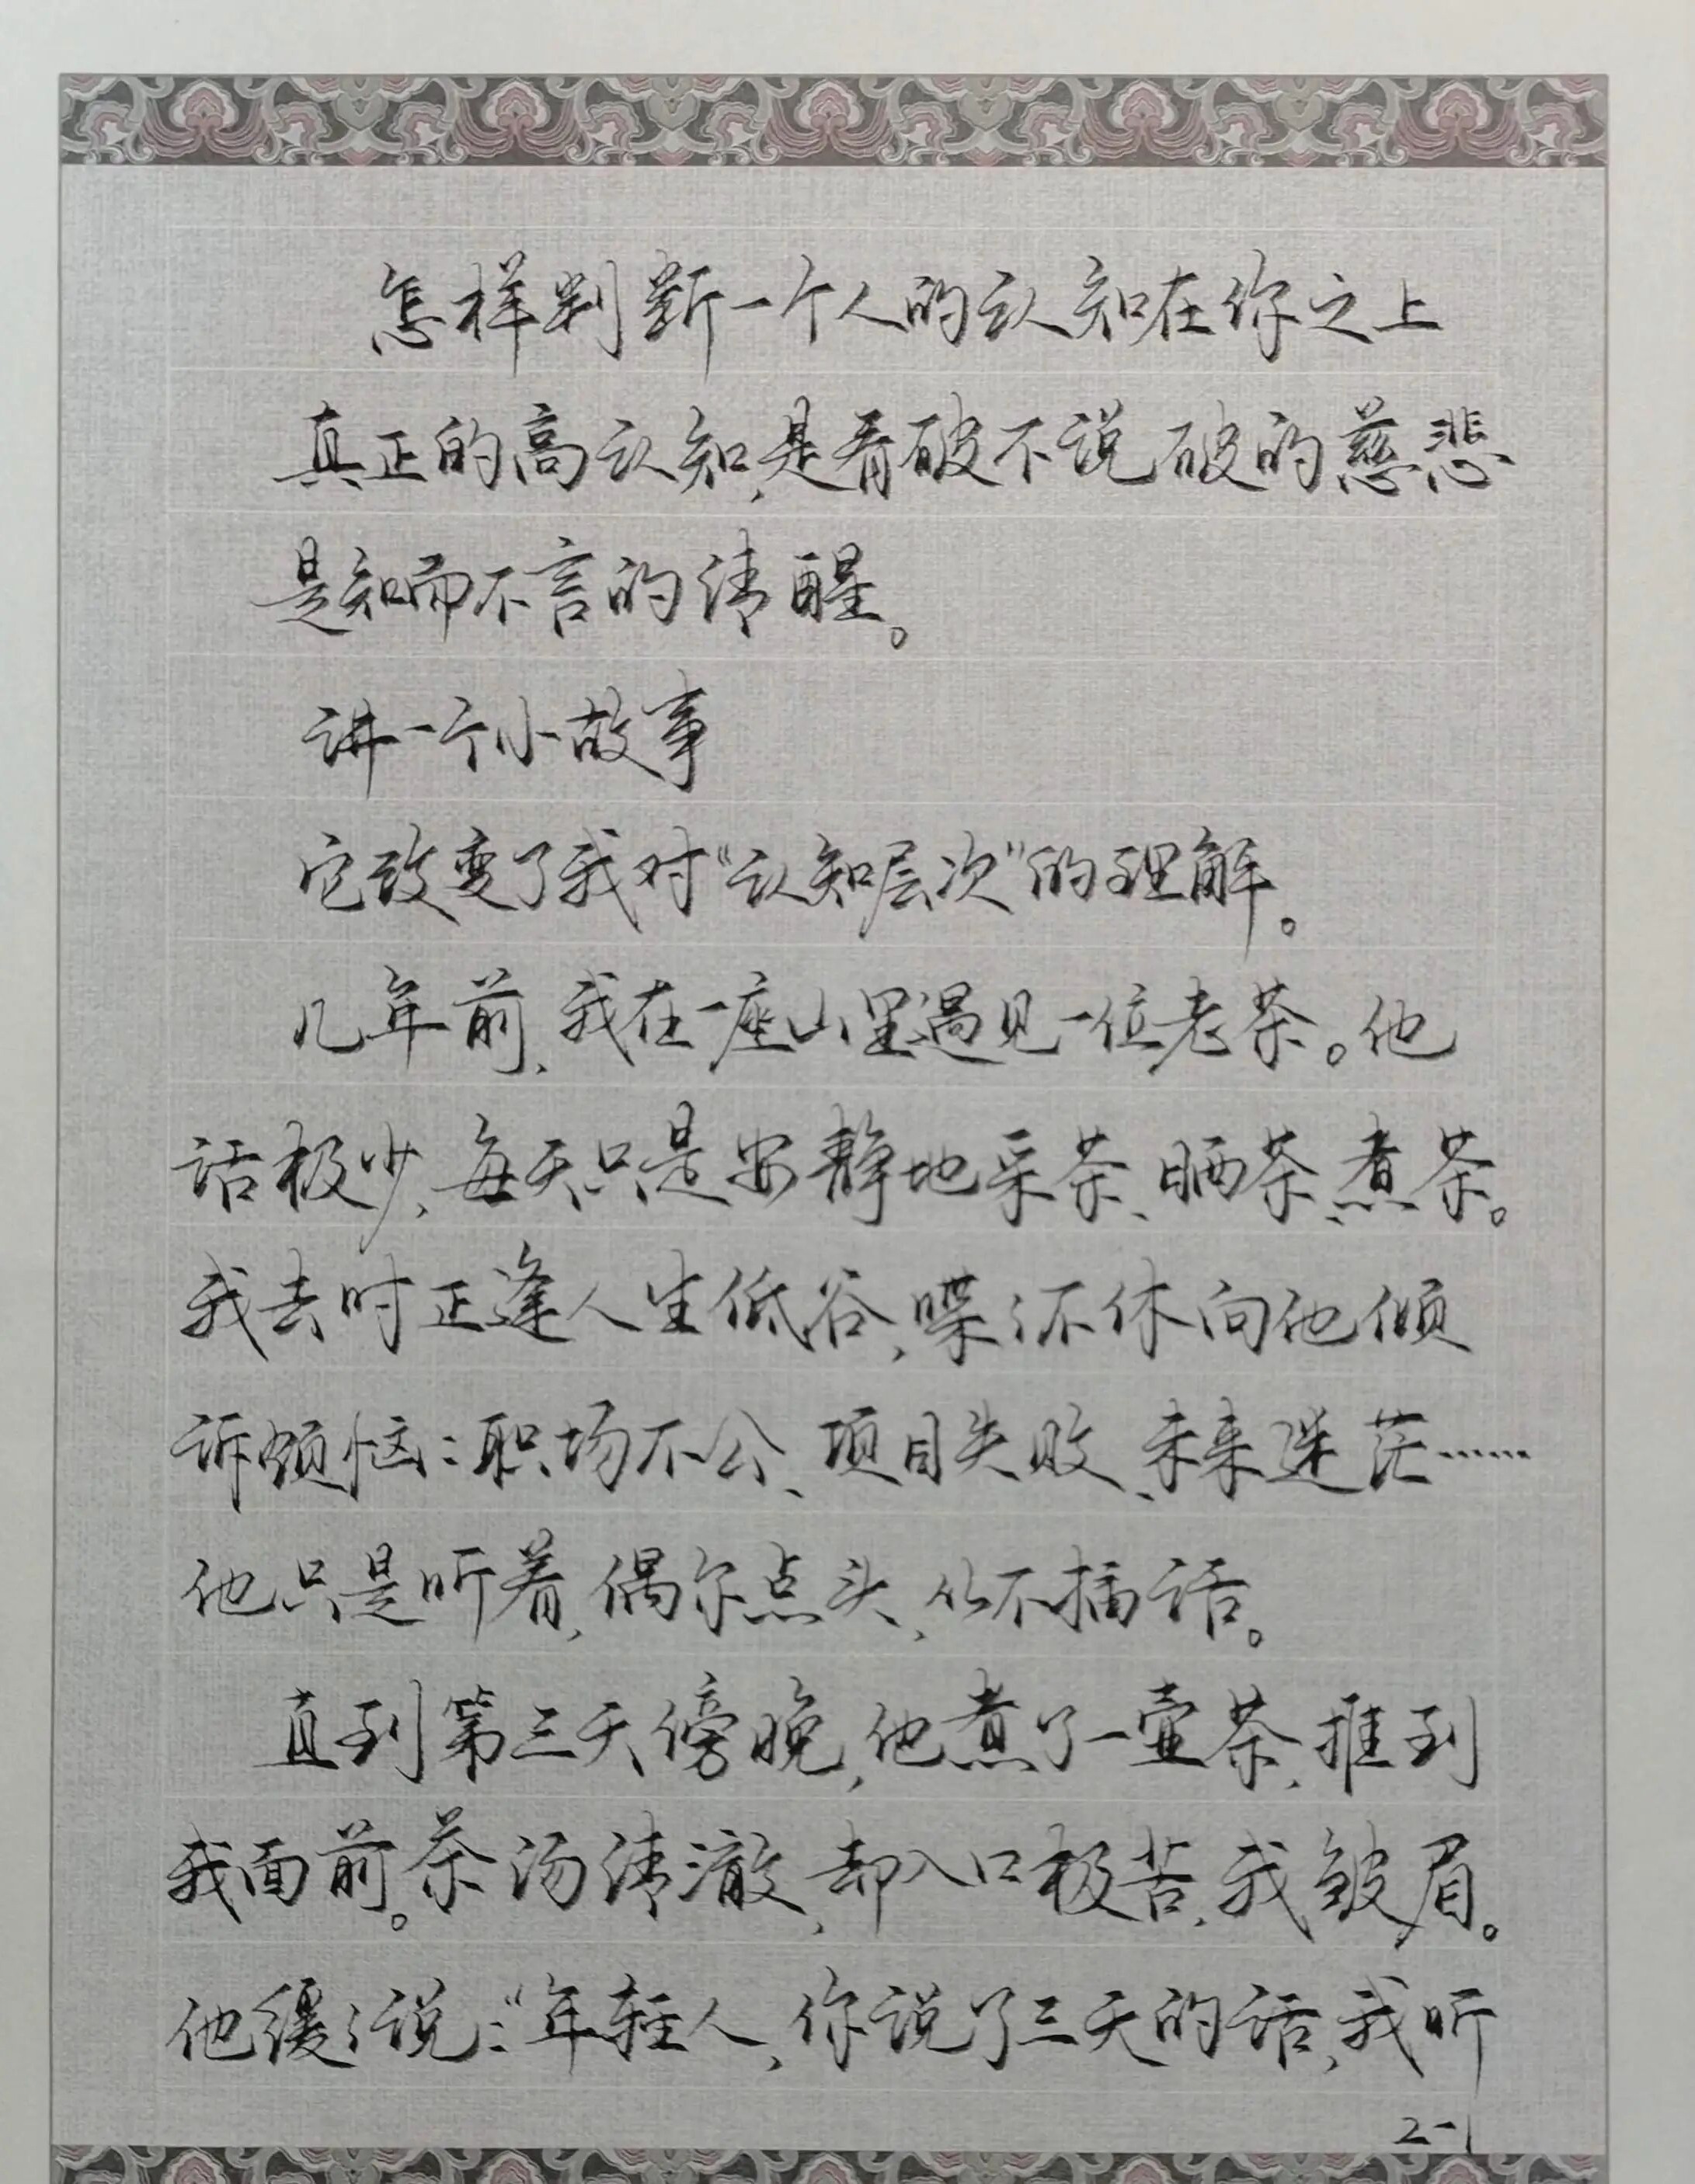 怎样判断一个人的认知在你之上
真正的高认知,是看破不说破的慈悲
是知而不言的清醒。
讲一个小故事
它改变了我对“认知层次”的理解。
几年前,我在一座山里遇见一位老茶。他
话极少,每天只是安静地采茶、晒茶、煮茶。
我去时正逢人生低谷,喋喋不休向他倾
诉烦恼:职场不公、项目失败、未来迷茫……
他只是听着,偶尔点头,从不插话。
直到第三天傍晚,他煮了一壶茶,推到
我面前。茶汤清澈,却入口极苦,我皱眉。
他缓缓说:“年轻人,你说了三天的话,我听
2-1